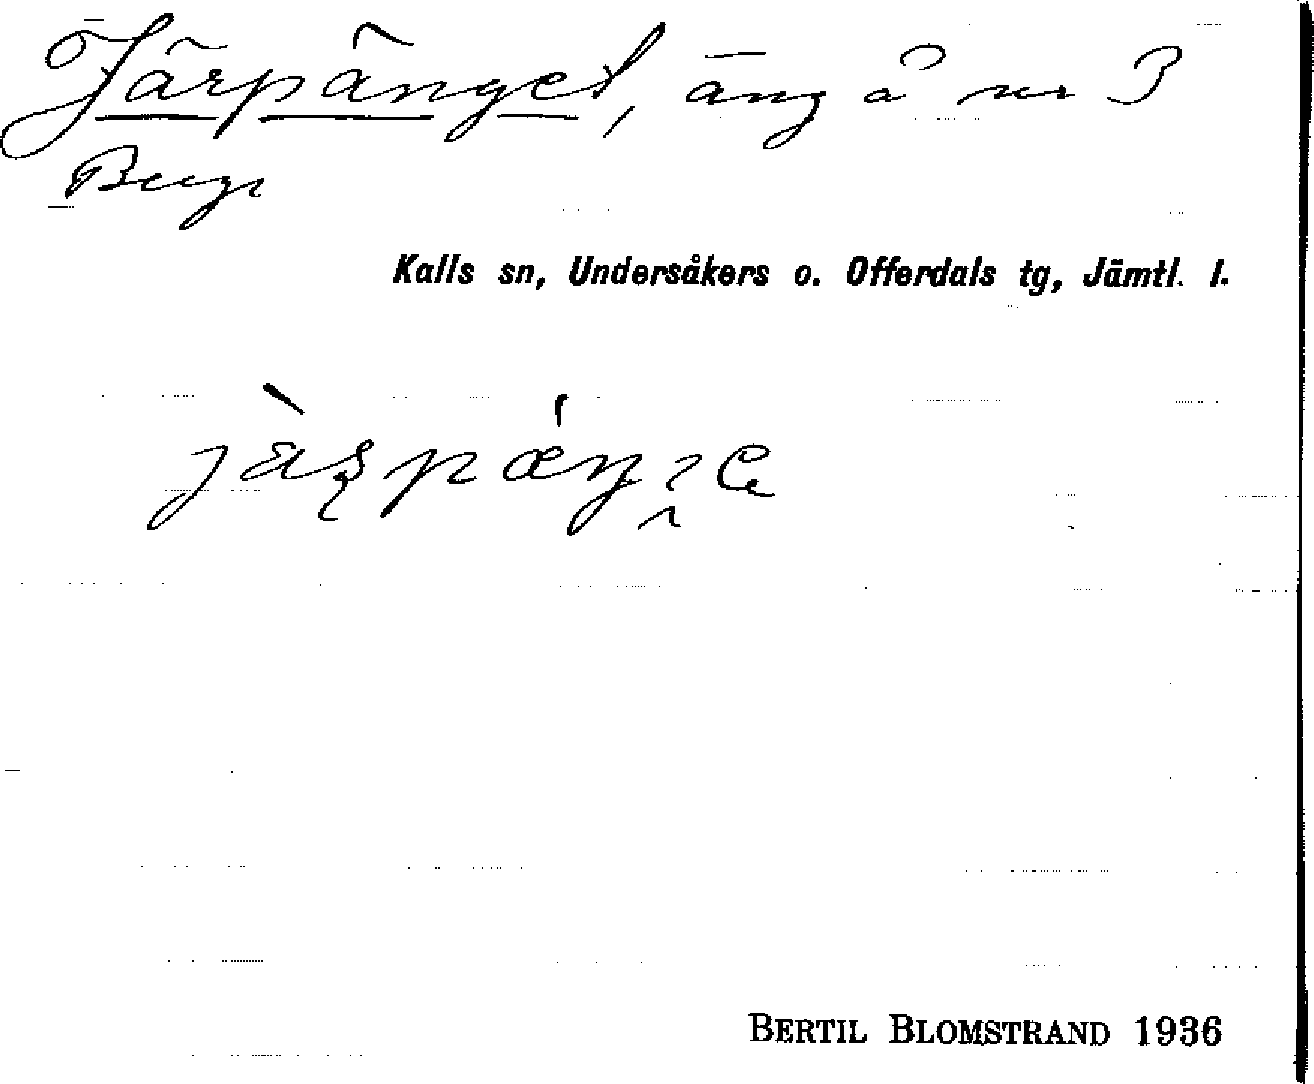 Järpänget, äng å nr 3
Berge
Kalls sn, Undersåkers o. Offerdals tg, Jämtl. l.
BERTIL BLOMSTRAND 1936